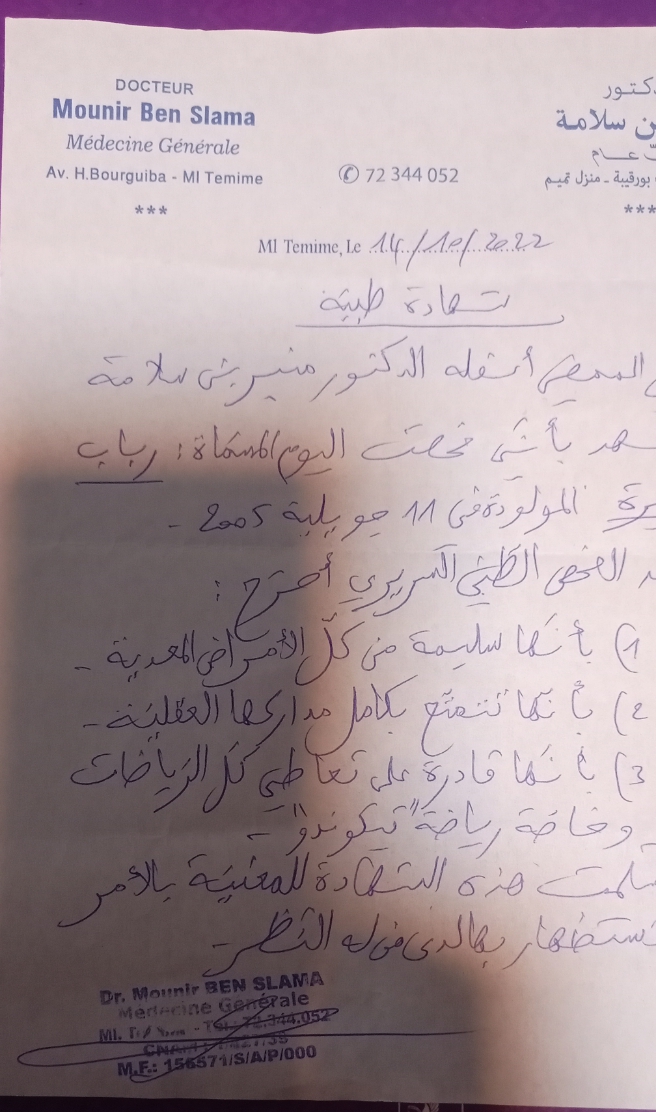 DOCTEUR
Mounir Ben Slama
Médecine Générale
Av. H.Bourguiba - Ml Temime
***
✆ 72 344 052
ن سلامة
عـــام
بورقيبة ـ منزل تميم
***
Ml Temime, Le 14/10/2022
شهادة طبية
الممضي أسفله الدكتور منير بن سلامة
بأنني فحصت اليوم المسماة : رباب
المولودة في 11 جويلية 2005 -
الفحص الطبي السريري أصرح :
1) بأنها سليمة من كل الأمراض المعدية -
2) بأنها تتمتع بكامل مداركها العقلية -
3) بأنها قادرة على تعاطي كل الرياضات
وخاصة رياضة "تيكوندو" -
سلمت هذه الشهادة للمعنية بالأمر
بها لدى من له النظر -
Dr. Mounir BEN SLAMA
Médecine Générale
Ml. - Tél.: 72.344.052
M.F.: 156571/S/A/P/000